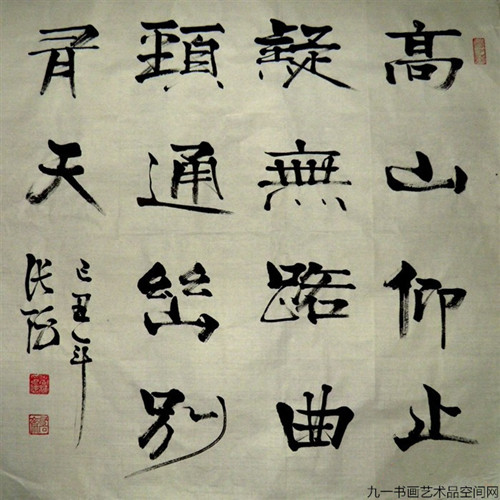 高山仰止
疑無路曲
頸通幽别
有天
己丑年
张
九一书画艺术品空间网